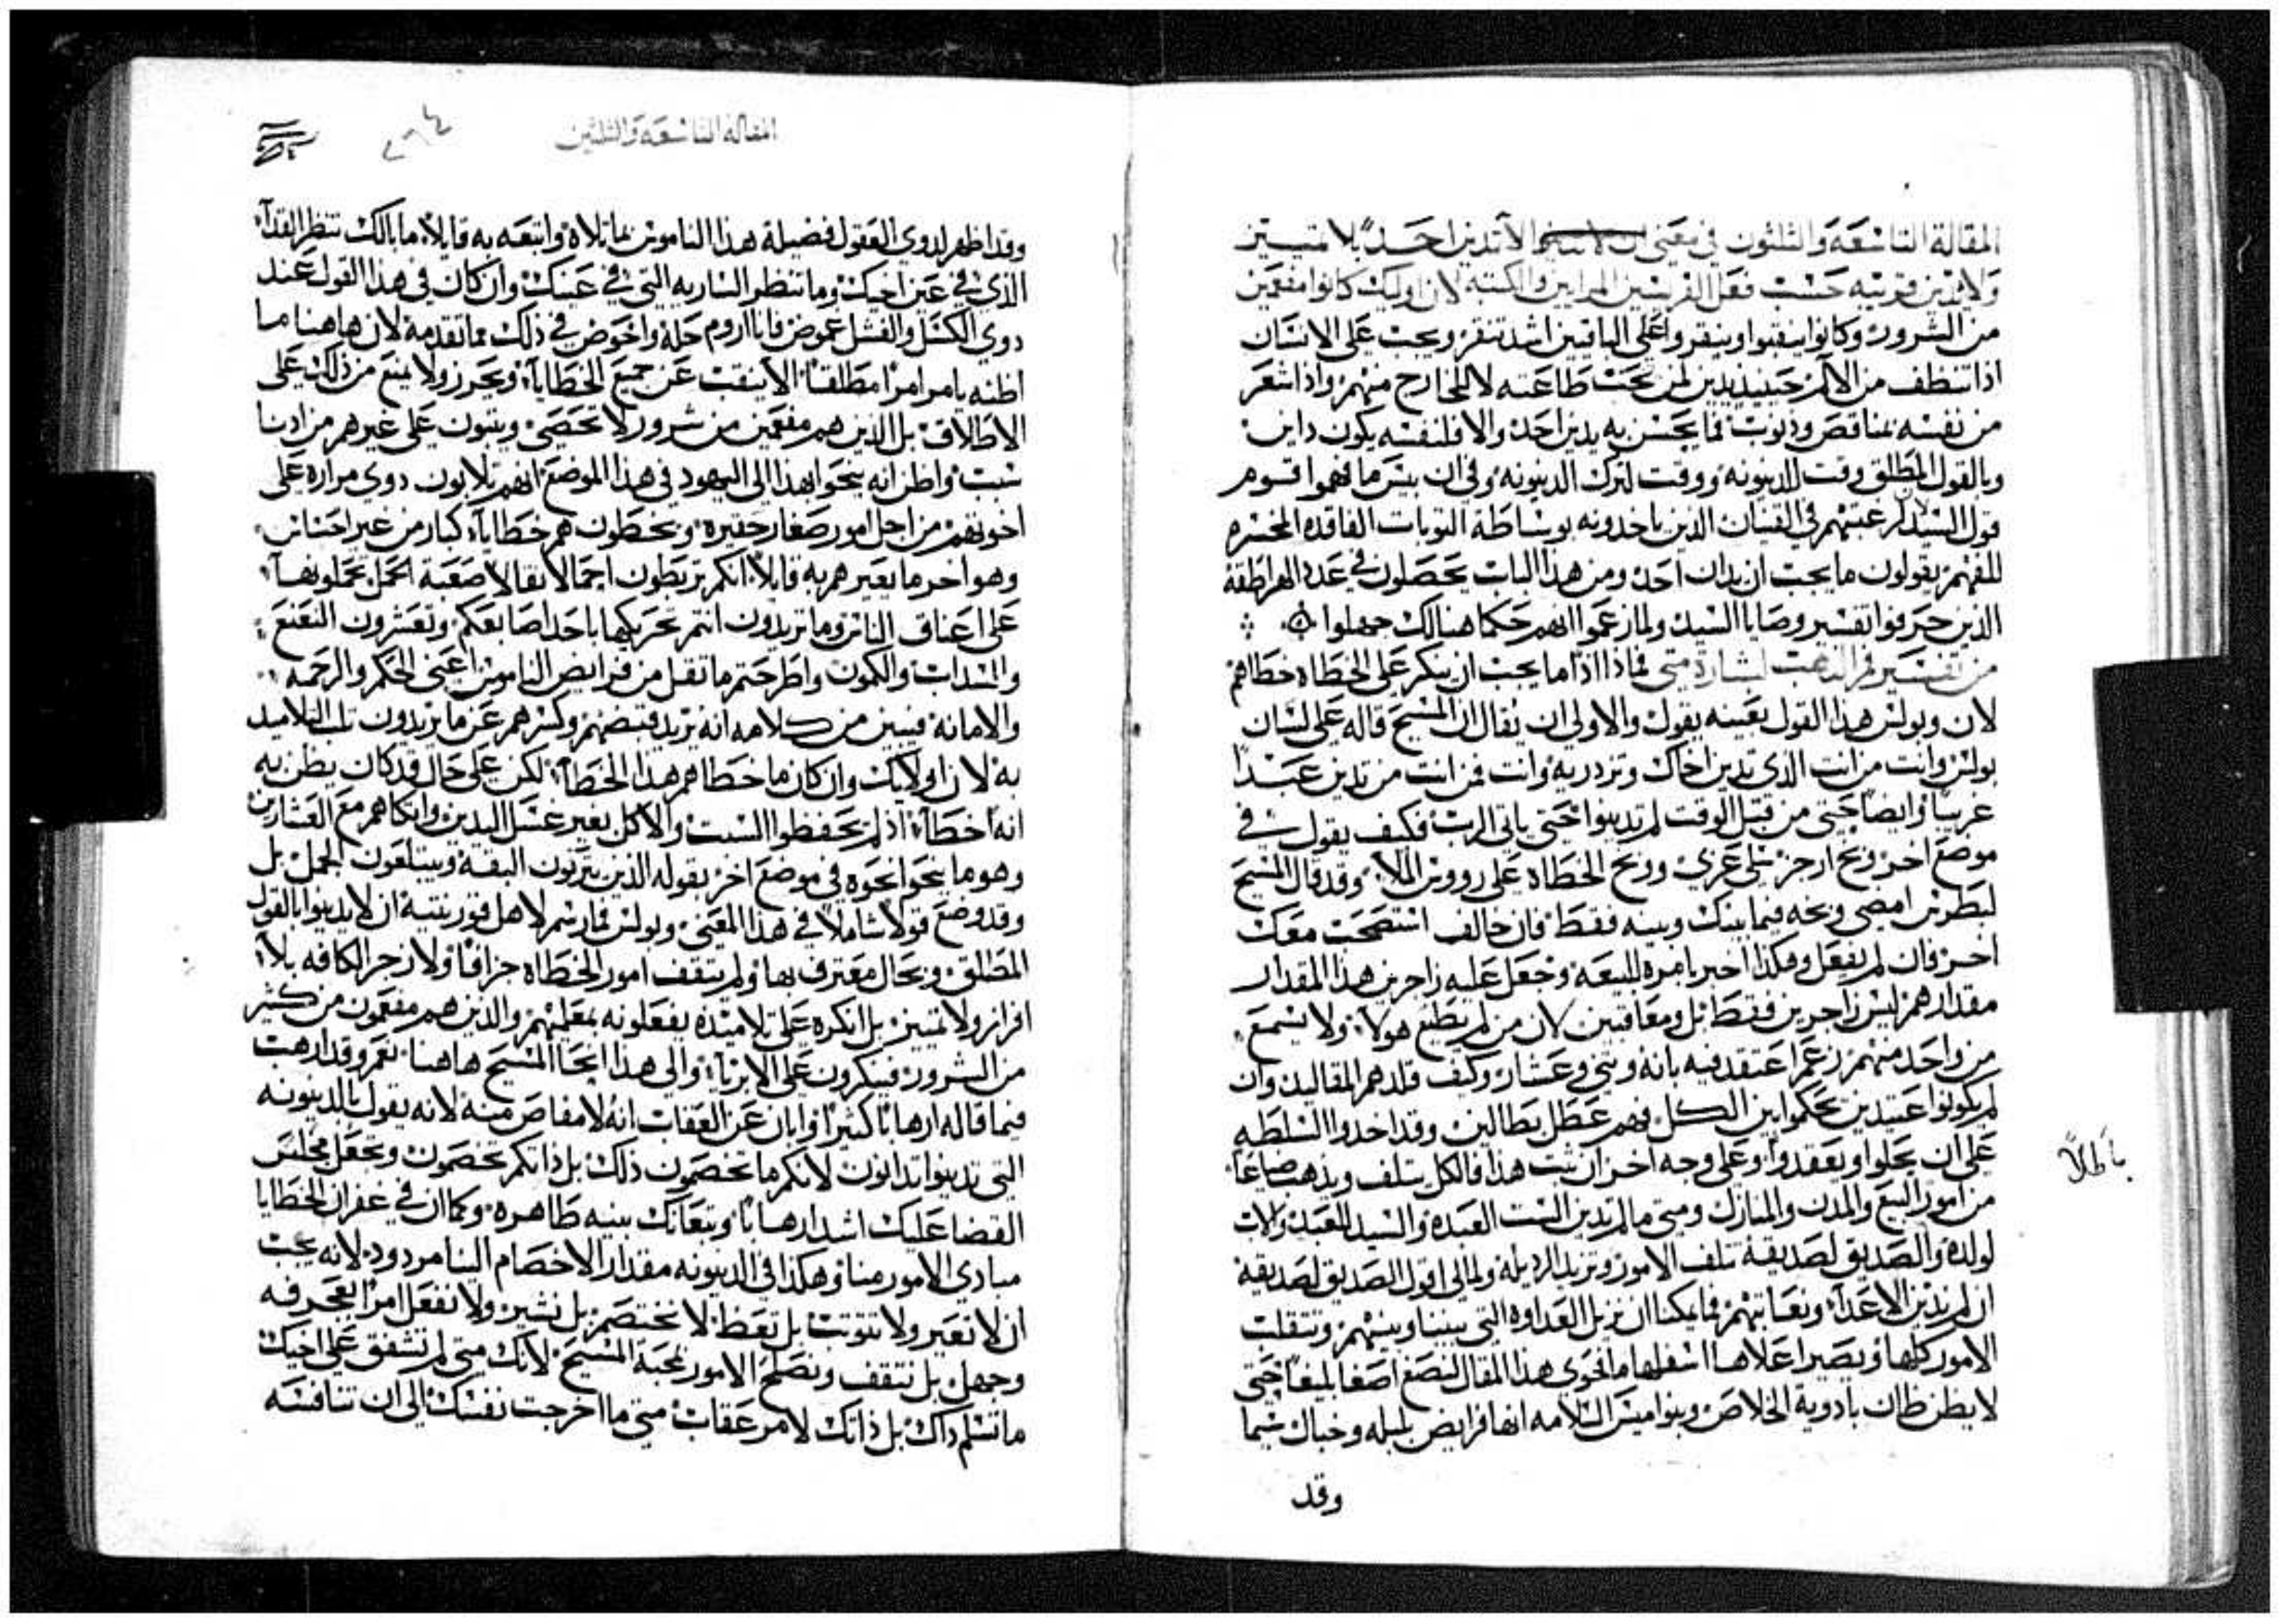 المقالة التاسعة والثلثون في معنى ان الا تدين احد بلا تمييز
ولا تدين قريبه حسب فعل الفريسين المرايين والكتبه لان اوليك كانوا مفعمين
من الشرور وكانوا ينقبوا وينقروا على الباقيين اشد تنقر ويجب على الانسان
اذا تنظف من الآلام حينيذ يدين لمن تحت طاعته لا للخارج منهم واذا شعر
من نفسه بمناقص وذنوب فما يحسن به يدين احد والا فلنفسه يكون داين
وبالقول المطلق وقت للدينونه ووقت لترك الدينونه وفي ان بيس ما فهموا قوم
قول السيد لرغبتهم في الفتيان الذين ياخدونه بوساطة التوبات الفاقده المخسره
للفهم يقولون ما يجب ان يدان احد ومن هذا الباب يحصلون في عدد الهراطقة
الذين حرفوا تفسير وصايا السيد ولما زعموا انهم حكما هنالك جهلوا
من تفسير فم الذهب لبشارة متى فماذا اذا ما يجب ان ينكر على الخطاه خطاهم
لان وبولس هذا القول بعينه يقول والاولى ان يقال ان المسيح قاله على لسان
بولس وانت من انت الذي تدين اخاك وتزدريه وانت فمن انت من تدين عبدا
غريبا وايضا حتى من قبل الوقت لم تدينوا حتى ياتى الرب فكيف يقول في
موضع اخر وبخ ازجر تلى عزي ووبخ الخطاه على رووس الملا وقد قال المسيح
لبطرس امضى وبخه فيما بينك وبينه فقط فان خالف استصحب معك
اخر فان لم يفعل وهكذا اخبر يامره للبيعه وجعل عليه زاجرين هذا المقدار
مقدارهم ليس زاجرين فقط بل ومعاقبين لان من لم يطيع هولا ولا يسمع
من واحد منهم زعم اعتقد فيه بانه وثني وعشار وكيف قلدهم المقاليد وان
لم يكونوا عتيدين يحكموا بين الكل فهم عطل بطالين وقد اخدوا السلطه
على ان يحلوا ويعقدوا وعلى وجه اخر ان ثبت هذا فالكل يتلف ويذهب ضياعا
باطلاً
من امور البيع والمدن والمنازل ومتى ما لم تدين الست العبده والسيد للعبد والاب
لولده والصديق لصديقه تلف الامور وتزيد الرديله ولمالى اقول الصديق لصديقه
ان لم ندين الاعدآ ونعاتبهم فما يمكنا ان نزيل العداوه التي بيننا وبينهم وتنقلب
الامور كلها ويصير اعلاها اسفلها ما فحوى هذا المقال لنصغ اصغا بليغا حتى
لا يظن ظان بادوية الخلاص وبنواميس السلامه انها فرايض بلبله وخباك شيما
وقد
المقاله التاسعه والثلثين
وقد اظهر لدوي العقول فضيلة هذا الناموس بما تلاه واتبعه به قايلا ما بالك تنظر القذآ
الذي في عين اخيك وما تنظر الساريه التي في عينك وان كان في هذا القول عند
دوي الكسل والفشل غموض فانا اروم حله واخوض في ذلك بما تقدمه لان هاهنا ما
اظنه يامر امرا مطلقا الا ينقب عن جميع الخطايا ويحرز ولا يمنع من ذلك على
الاطلاق بل الذين هم مفعمين من شرور لا تحصى ويثبون على غيرهم من ادنا
سبب واظن انه ينحوا بهذا الى اليهود في هذا الموضع انهم ثلابون دوي مراره على
اخوتهم من اجل امور صغار حقيره ويخطون هم خطاياآ كبار من غير احساس
وهو اخر ما يعيرهم به قايلا انكم تربطون اجمالا ثقالا صعبة الحمل تحملونها
على اعناق الناس وما تريدون انتم تحريكها باحد اصابعكم وتعشرون النعنع
والسداب والكمون واطرحتم ما ثقل من فرايض الناموس اعنى الحكم والرحمه
والامانة فيبين من كلامه انه يريد قبضهم وكسرهم عن ما يريدون ثلب التلاميد
به لان اوليك وان كان ما خطاهم هذا الخطا لكن على حال قد كان يظن به
انه خطآ اذ لم يحفظوا السبت والاكل بغير غسل اليدين واتكاهم مع العشارين
وهو ما ينحوا نحوه في موضع اخر بقوله الذين يترنون البقه ويبتلعون الجمل بل
وقد وضع قولا شاملا في هذا المعنى وبولس فما رسم لاهل قورنتيه ان لا يدينوا بالقول
المطلق وبحال معترف بها ولم يثقف امور الخطاه جزافا ولا زجر الكافه بلا
افراز ولا تمييز بل انكره على تلاميذه يفعلونه بمعلميهم والذين هم مفعمون من كثير
من الشرور فينكرون على الابريا والى هذا انجا المسيح هاهنا نعم وقد ارهب
فيما قاله ارهابا كثيرا وابان عن العقاب انه لا مفاص منه لانه يقول بالدينونه
التي تدينوا تدانون لانكم ما تخصمون ذلك بل ذاتكم تخصمون وتجعل مجلس
القضا عليك اشد ارهابا وتبعاتك بينه ظاهره وكما ان في غفران الخطايا
مبادي الامور منا وهكذا في الدينونه مقدار الاخصام الينا مردود لانه يجب
ان لا نعير ولا نتوثب بل نعظ لا نختصم بل نشير ولا نفعل امرا بعجرفه
وجهل بل نثقف ونصلح الامور بمحبة المسيح لانك متى لم تشفق على اخيك
ما تسلم داك بل ذاتك لامر عقاب متى ما اخرجت نفسك الى ان تنافسه